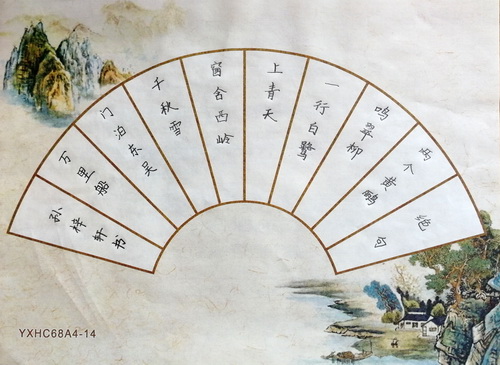 绝句
两个黄鹂
鸣翠柳
一行白鹭
上青天
窗含西岭
千秋雪
门泊东吴
万里船
孙梓轩书
YXHC68A4-14